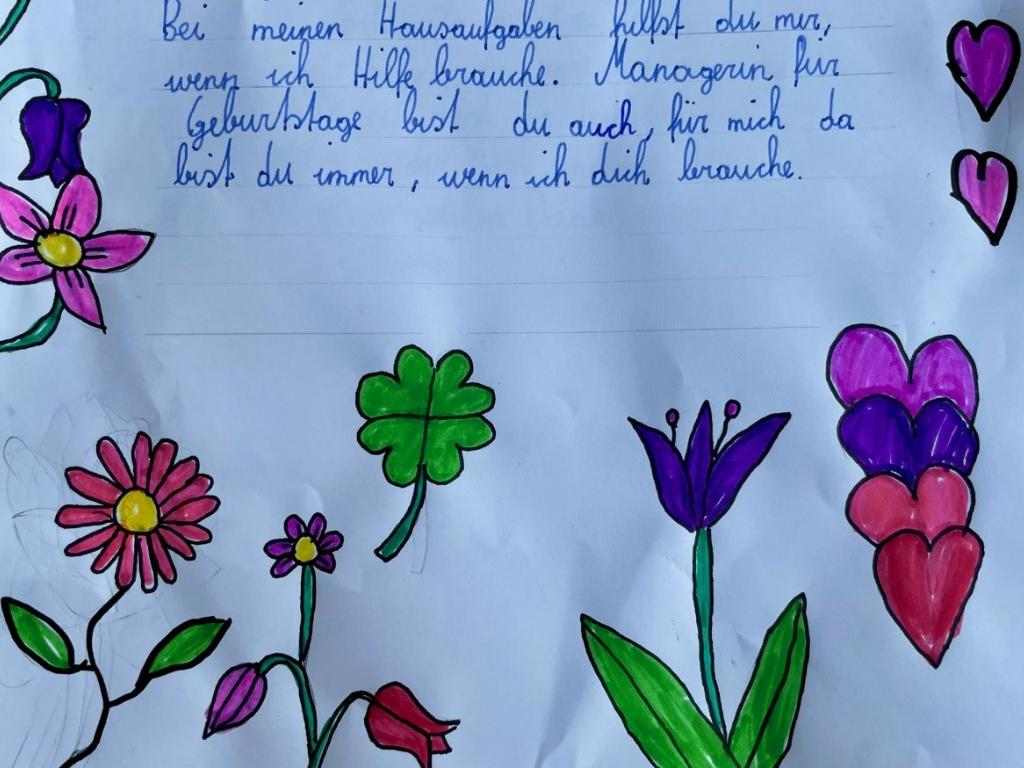 Bei meinen Hausaufgaben hilfst du mir,
wenn ich Hilfe brauche. Managerin für
Geburtstage bist du auch, für mich da
bist du immer, wenn ich dich brauche.